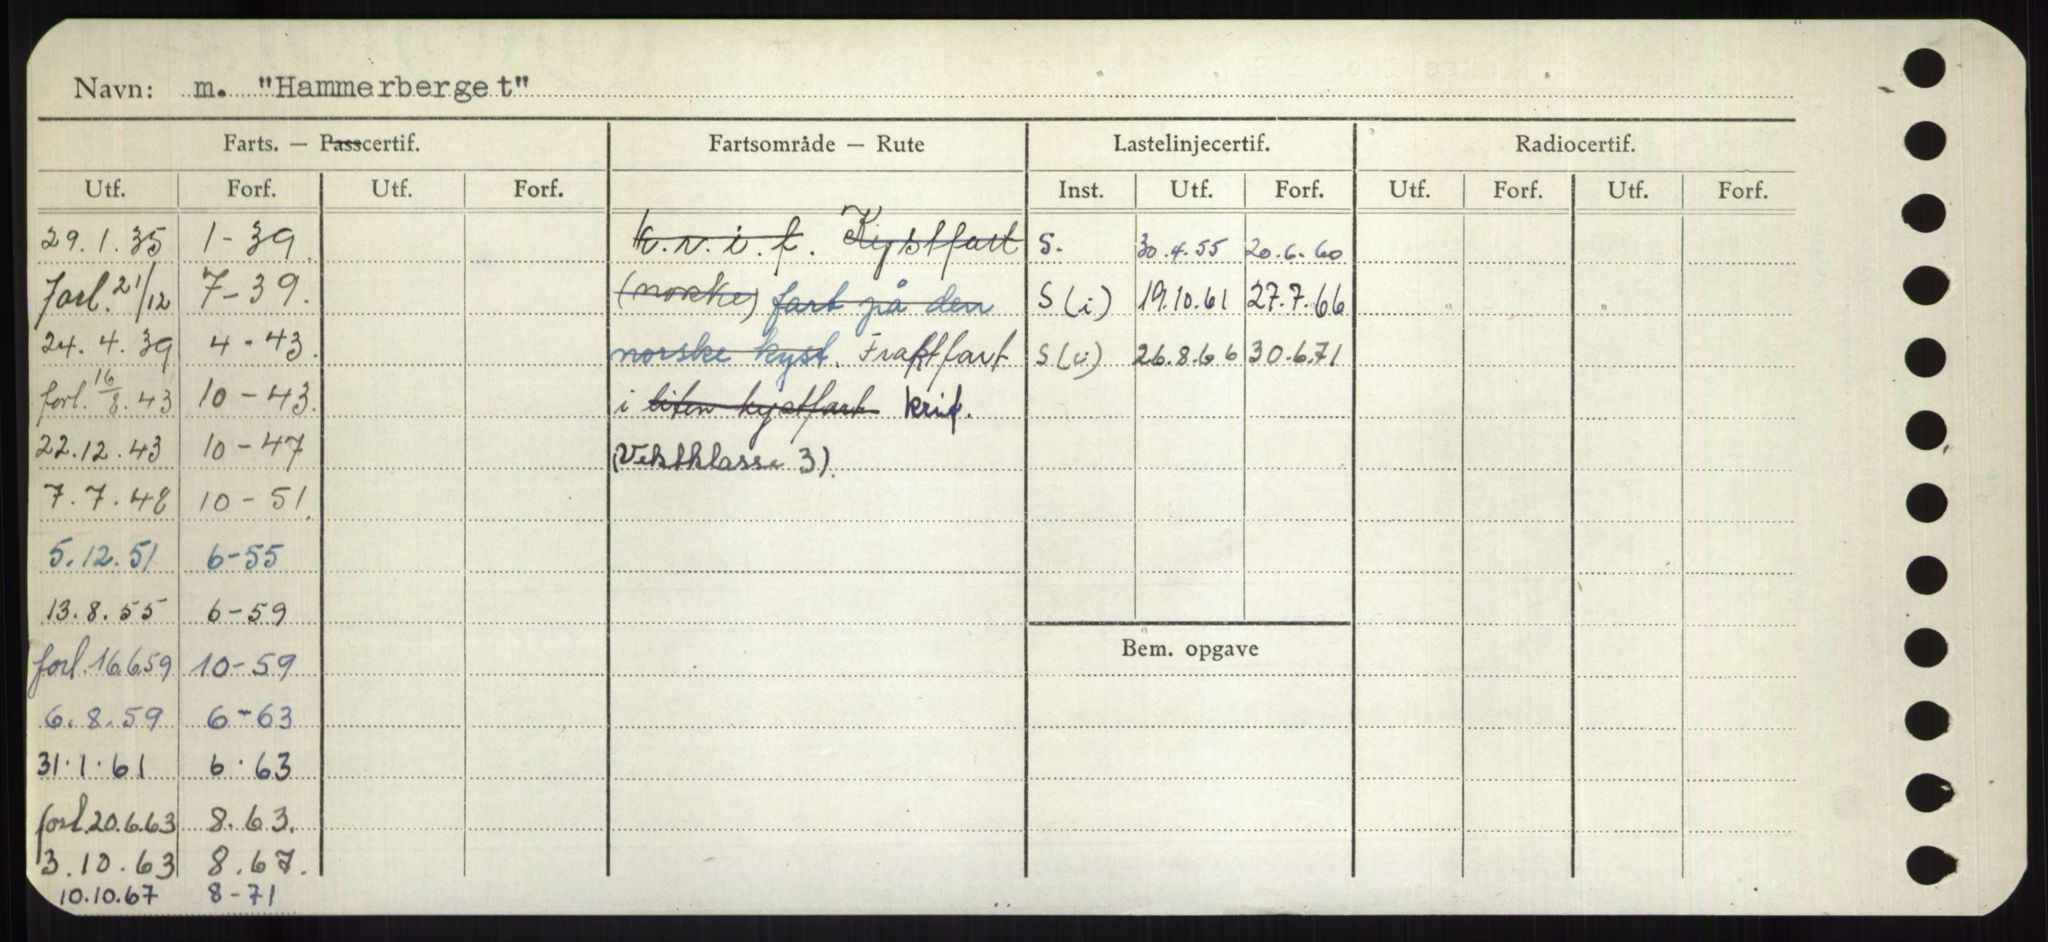 Navn: m. "Hammerberget"
Farts. — Passcertif. Fartsområde — Rute Lastelinjecertif. Radiocertif.
Utf. Forf. Utf. Forf. Inst. Utf. Forf. Utf. Forf. Utf. Forf.
29.1.35 1-39 k.r.i.f. Kystfart S. 30.4.55 20.6.60
forl. 21/12 7-39. (norske) fart på den S (i) 19.10.61 27.7.66
24.4.39 4-43. norske kyst. Fraktfart S (i) 26.8.66 30.6.71
forl. 16/8.43 10-43. i liten kystfart krif.
22.12.43 10-47 (Vektklasse 3).
7.7.48 10-51.
5.12.51 6-55
13.8.55 6-59
Bem. opgave
forl. 16.6.59 10-59
6.8.59 6-63
31.1.61 6.63
forl. 20.6.63 8.63.
3.10.63 8.67.
10.10.67 8-71